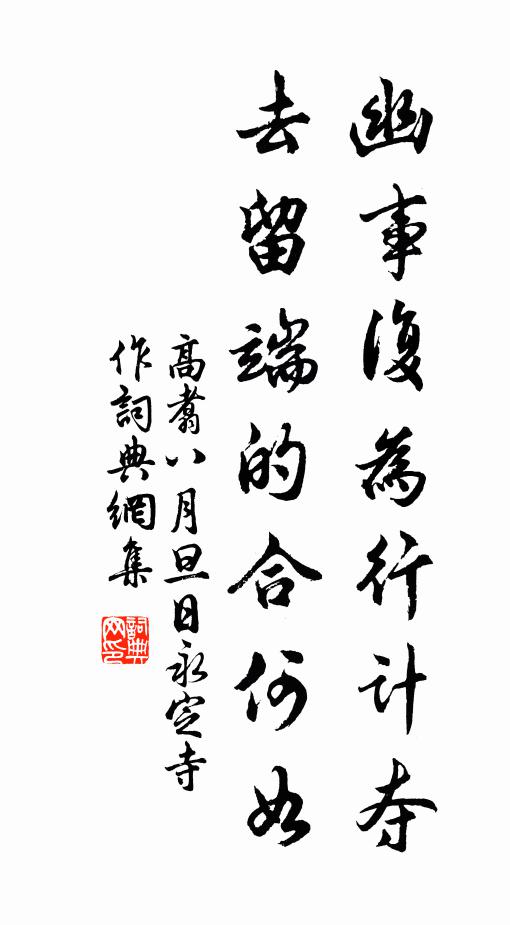 幽事復為行計夺
去留端的合何如
高翥八月旦日永定寺
作詞典網集
詞典网印